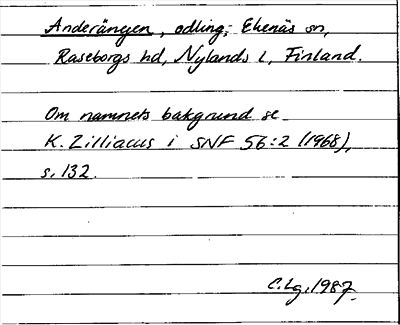 Anderängen, odling; Ekenäs sn,
Raseborgs hd, Nylands l, Finland.
Om namnets bakgrund se
K. Zilliacus i SNF 56:2 (1968),
s. 132.
C.Lg. 1987.